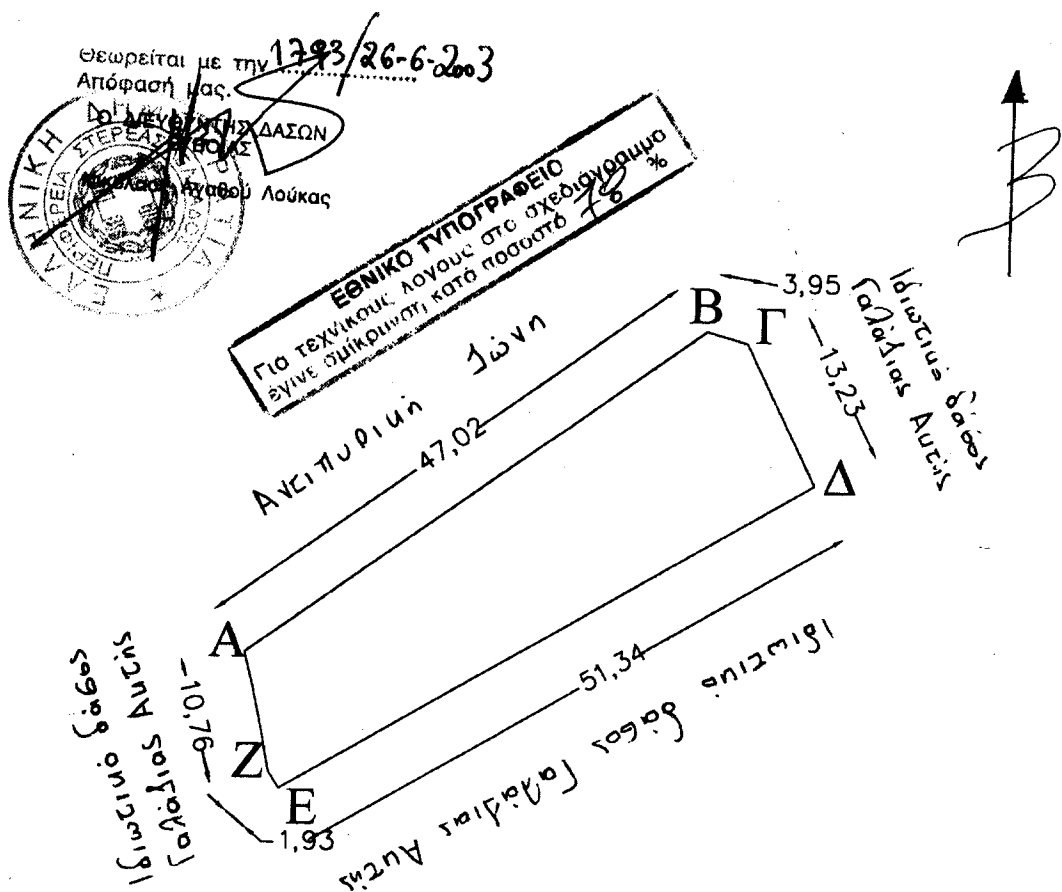 Θεωρείται με την 1793/26-6-2003
Απόφασή μας.
Ο ΔΙΕΥΘΥΝΤΗΣ ΔΑΣΩΝ
Αγαθού Λούκας
ΕΛΛΗΝΙΚΗ
ΠΕΡΙΦΕΡΕΙΑ ΣΤΕΡΕΑΣ
ΕΘΝΙΚΟ ΤΥΠΟΓΡΑΦΕΙΟ
Για τεχνικους λογους στο σχεδιαγραμμα
εγινε σμίκρυνση κατά ποσοστό 78 %
Β
Αντιπυρική Ζώνη
47,02
Β
Γ
3,95
13,23
Ιδιωτικό δάσος
Γαλάζιας Ακτής
Δ
Α
10,76
Ιδιωτικό δάσος
Γαλάζιας Ακτής
Ζ
Ε
1,93
51,34
Ιδιωτικό δάσος Γαλάζιας Ακτής